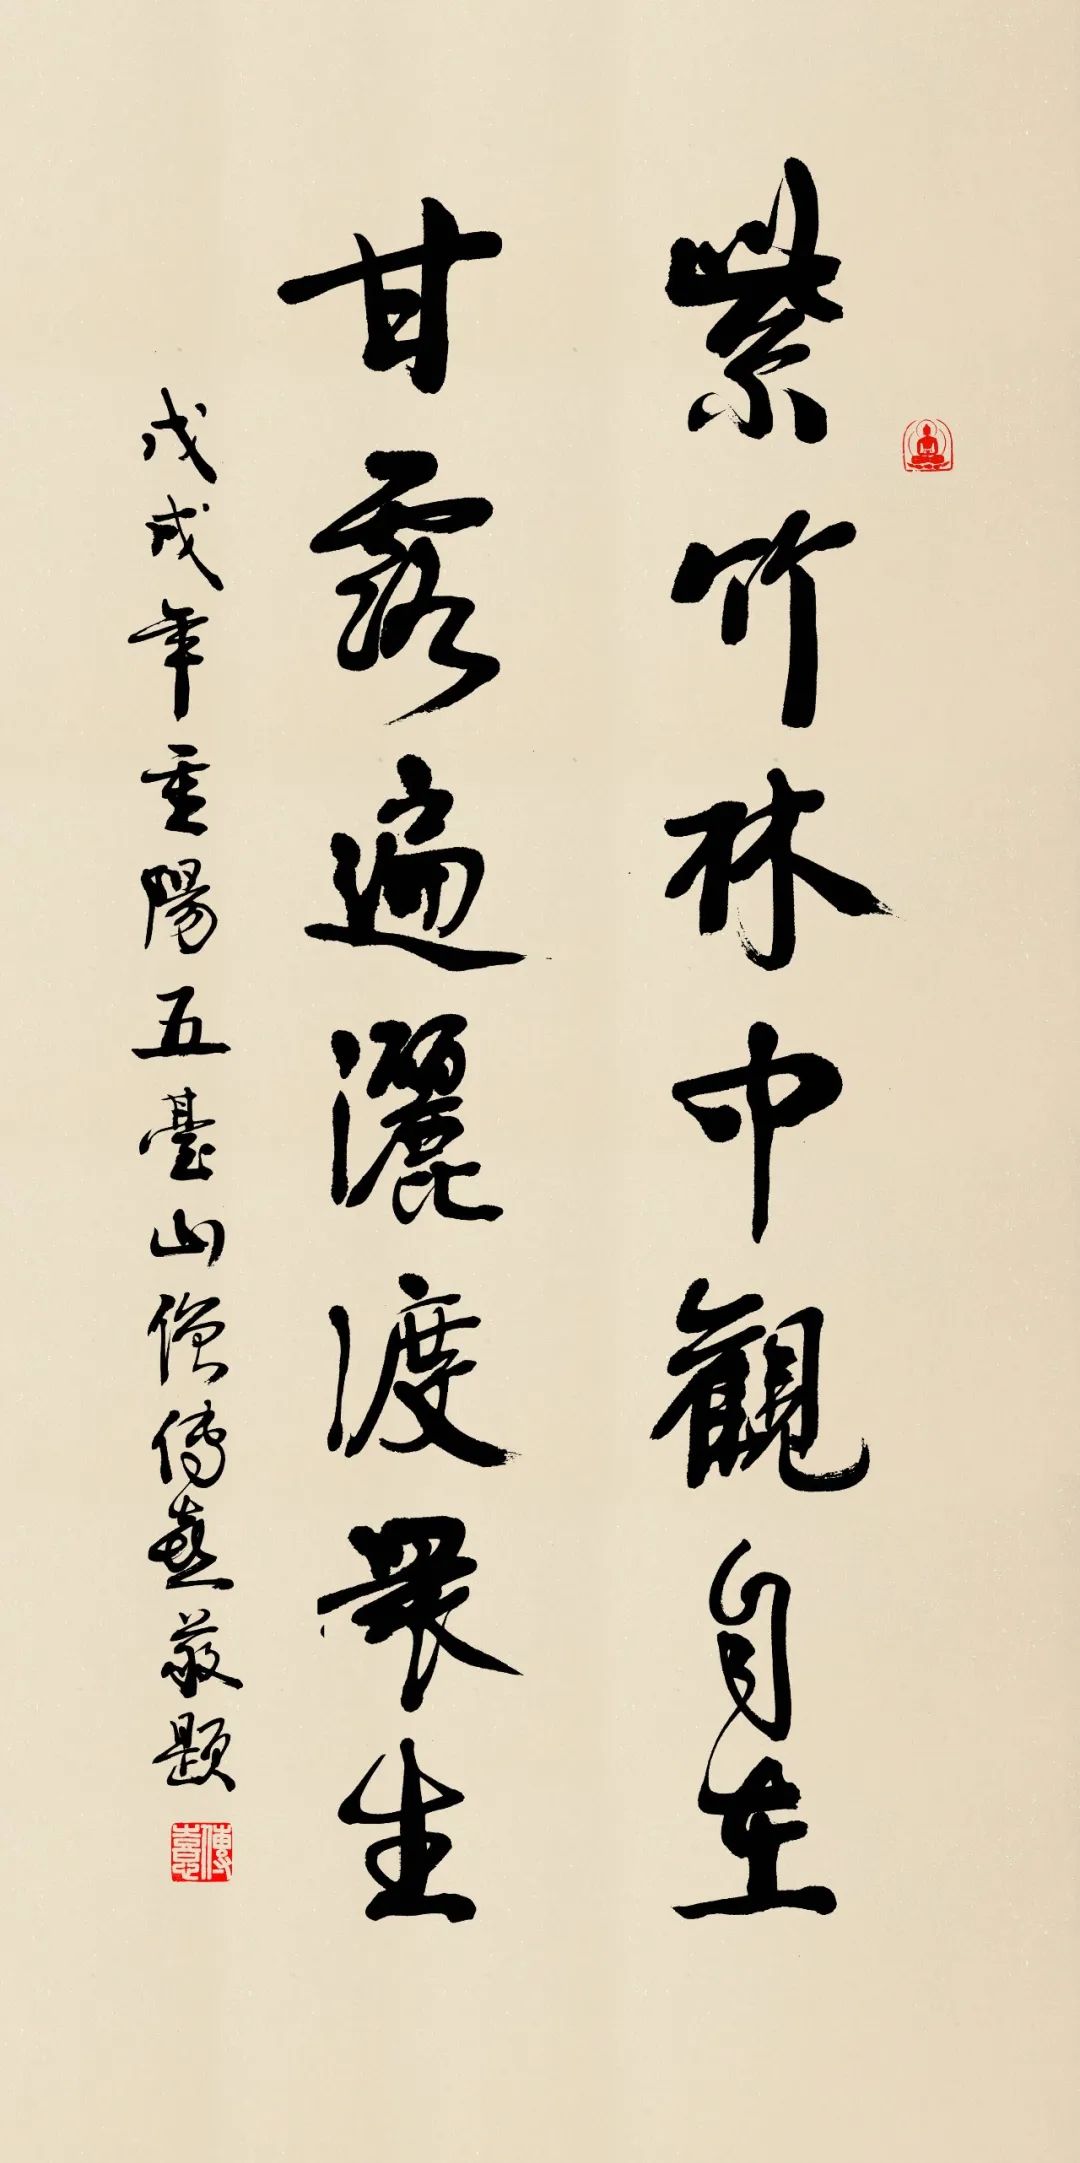 紫竹林中觀自在
甘露遍灑渡眾生
戊戌年重陽五臺山僧傳憙敬題
傳憙